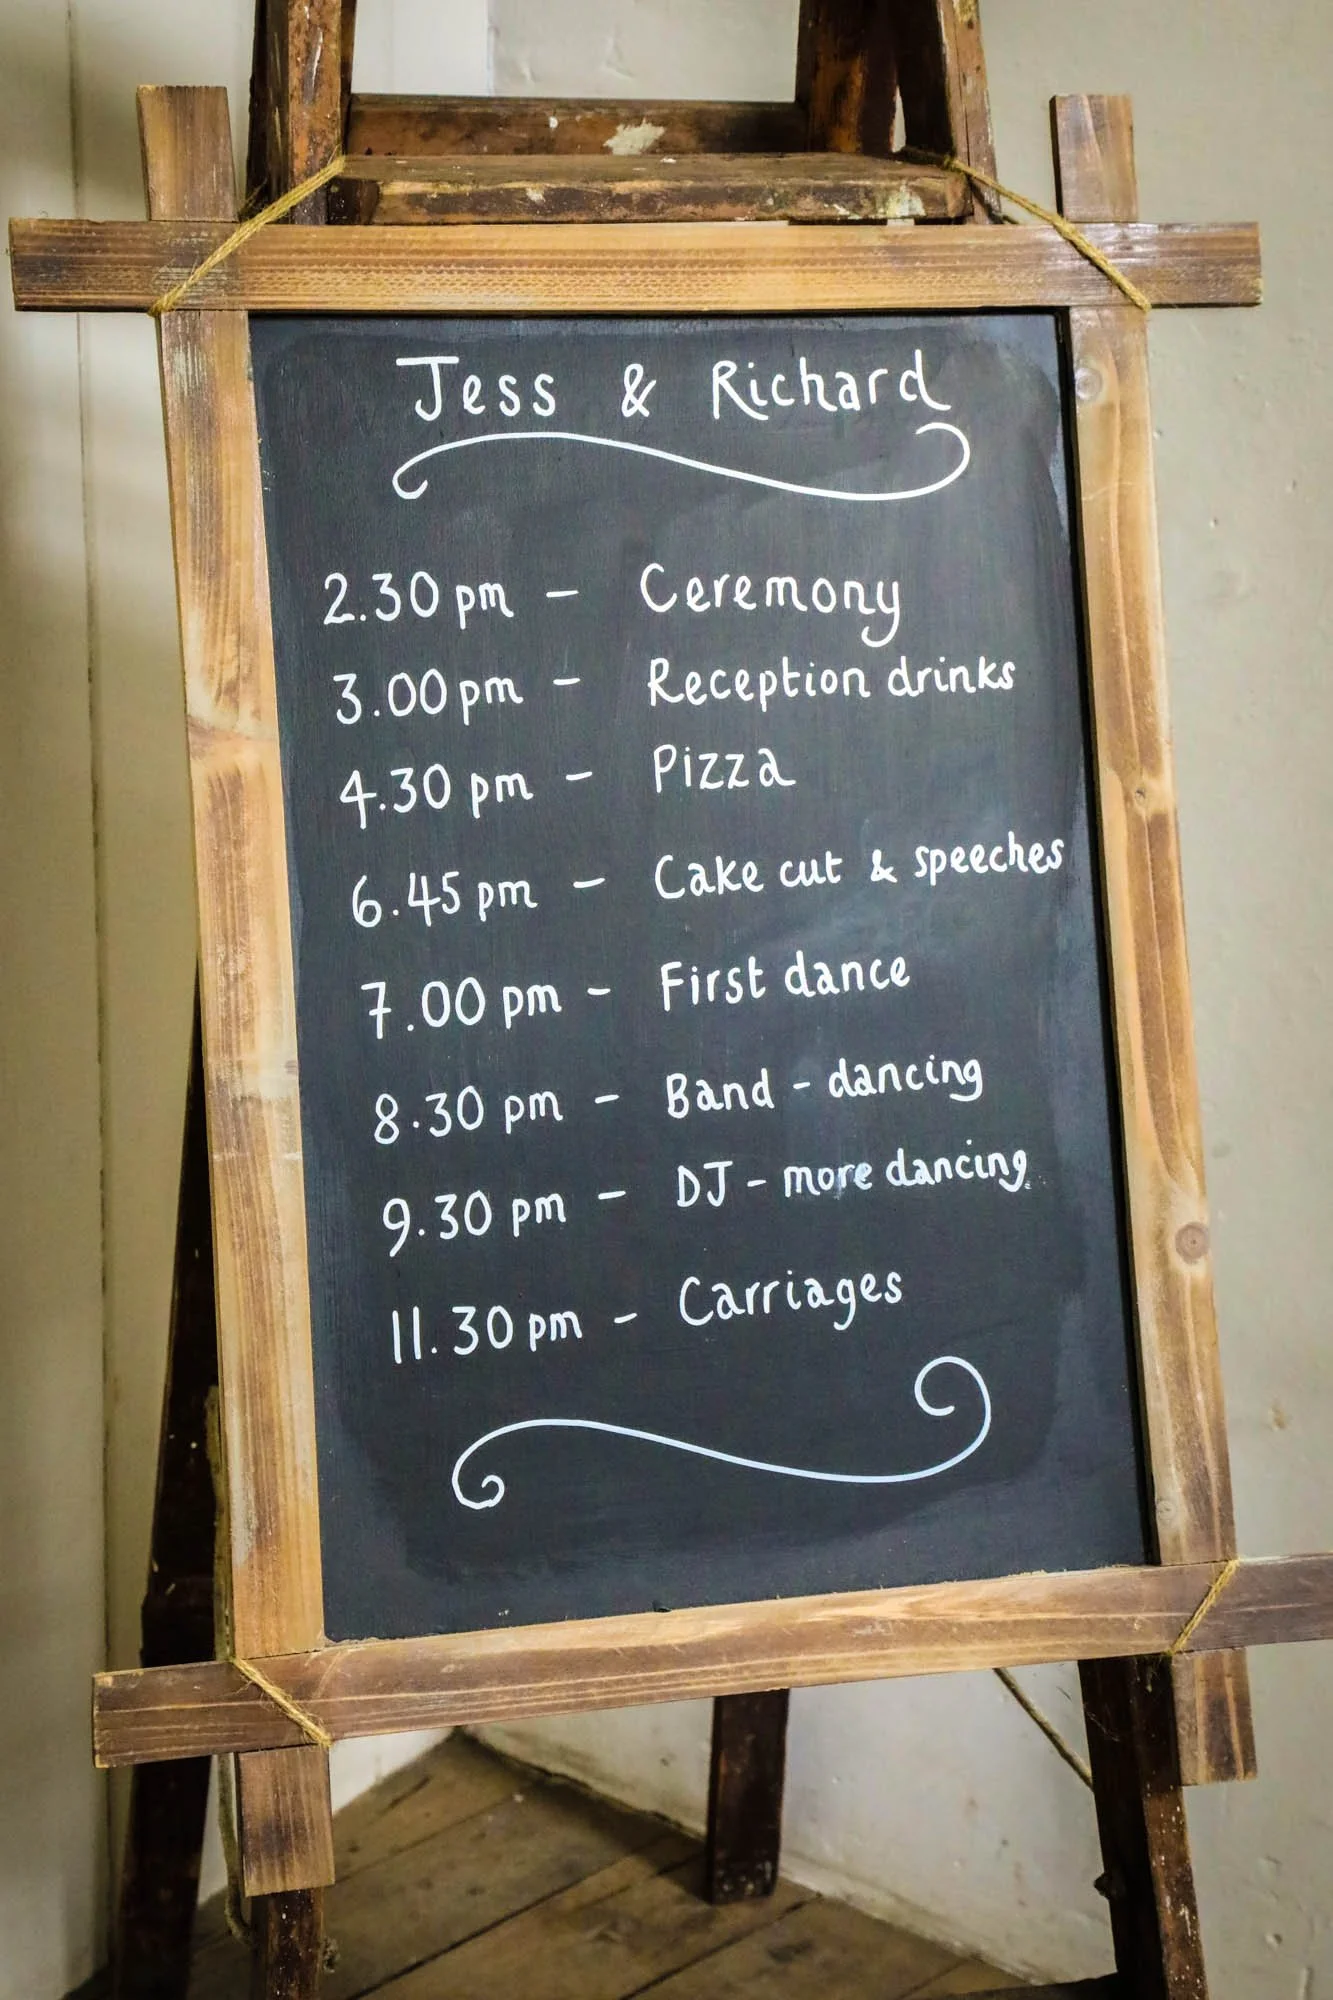 Jess & Richard
2.30pm - Ceremony
3.00pm - Reception drinks
4.30pm - Pizza
6.45pm - Cake cut & speeches
7.00pm - First dance
8.30pm - Band - dancing
9.30pm - DJ - more dancing
11.30pm - Carriages